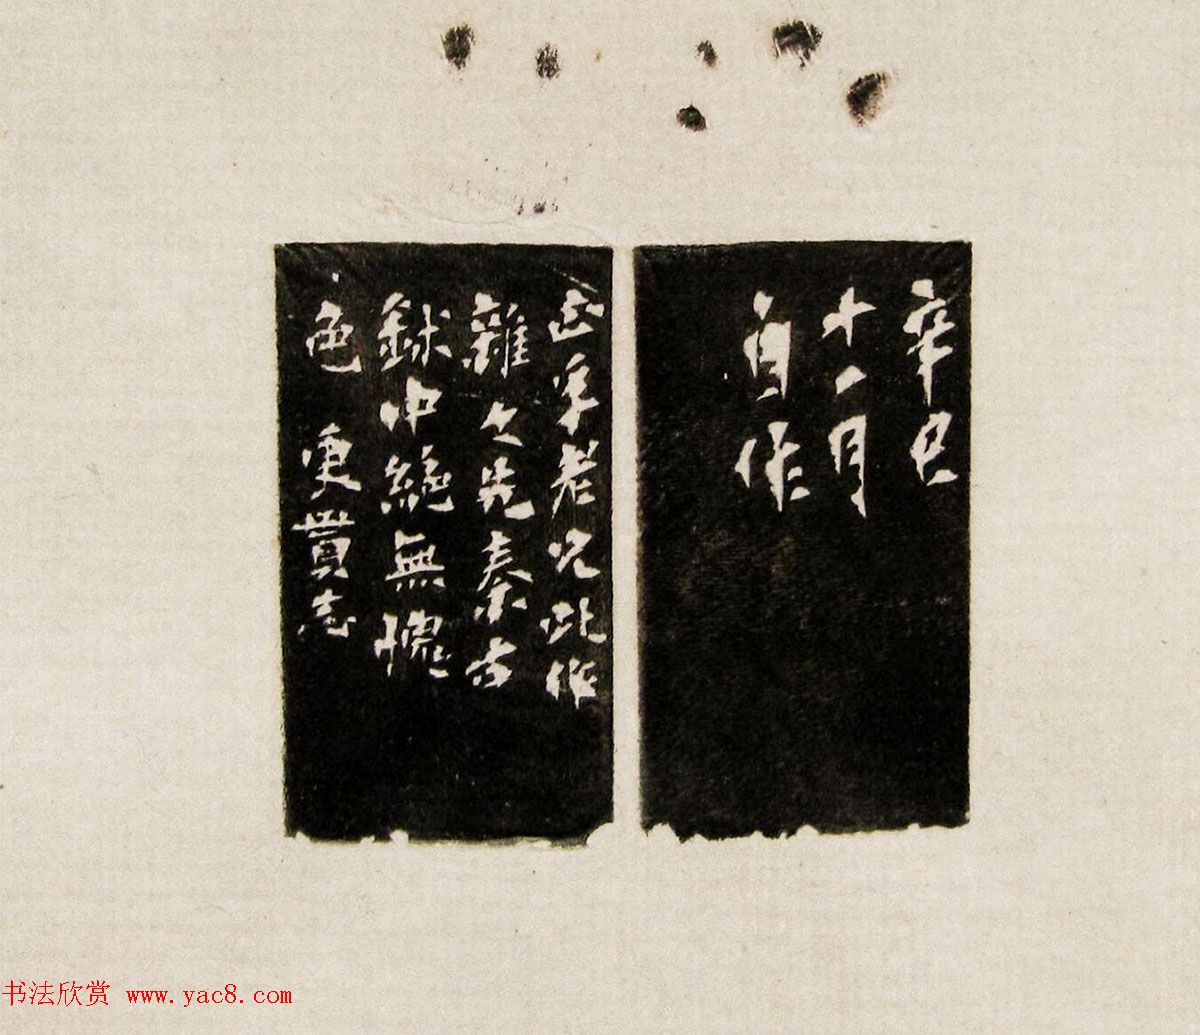 辛巳
十一月
自作
正孚老兄此作
雜之先秦古
鉨中絶無愧
色 更蕒志
书法欣赏 www.yac8.com